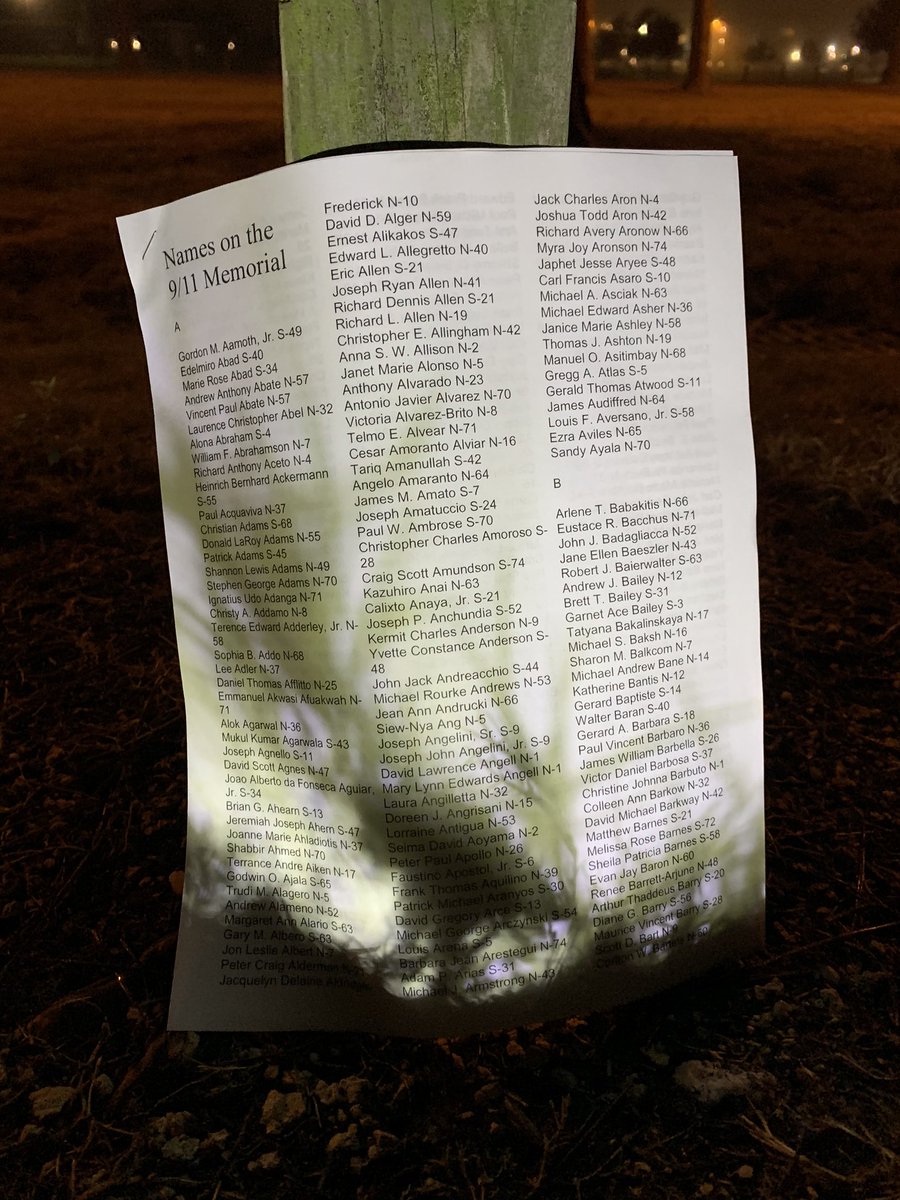 Names on the
9/11 Memorial
A
Gordon M. Aamoth, Jr. S-49
Edelmiro Abad S-40
Marie Rose Abad S-34
Andrew Anthony Abate N-57
Vincent Paul Abate N-57
Laurence Christopher Abel N-32
Alona Abraham S-4
William F. Abrahamson N-7
Richard Anthony Aceto N-4
Heinrich Bernhard Ackermann
S-55
Paul Acquaviva N-37
Christian Adams S-68
Donald LaRoy Adams N-55
Patrick Adams S-45
Shannon Lewis Adams N-49
Stephen George Adams N-70
Ignatius Udo Adanga N-71
Christy A. Addamo N-8
Terence Edward Adderley, Jr. N-
58
Sophia B. Addo N-68
Lee Adler N-37
Daniel Thomas Afflitto N-25
Emmanuel Akwasi Afuakwah N-
71
Alok Agarwal N-36
Mukul Kumar Agarwala S-43
Joseph Agnello S-11
David Scott Agnes N-47
Joao Alberto da Fonseca Aguiar,
Jr. S-34
Brian G. Ahearn S-13
Jeremiah Joseph Ahern S-47
Joanne Marie Ahladiotis N-37
Shabbir Ahmed N-70
Terrance Andre Aiken N-17
Godwin O. Ajala S-65
Trudi M. Alagero N-5
Andrew Alameno N-52
Margaret Ann Alario S-63
Gary M. Albero S-63
Jon Leslie Albert N-7
Peter Craig Alderman
Jacquelyn Delaine
Frederick N-10
David D. Alger N-59
Ernest Alikakos S-47
Edward L. Allegretto N-40
Eric Allen S-21
Joseph Ryan Allen N-41
Richard Dennis Allen S-21
Richard L. Allen N-19
Christopher E. Allingham N-42
Anna S. W. Allison N-2
Janet Marie Alonso N-5
Anthony Alvarado N-23
Antonio Javier Alvarez N-70
Victoria Alvarez-Brito N-8
Telmo E. Alvear N-71
Cesar Amoranto Alviar N-16
Tariq Amanullah S-42
Angelo Amaranto N-64
James M. Amato S-7
Joseph Amatuccio S-24
Paul W. Ambrose S-70
Christopher Charles Amoroso S-
28
Craig Scott Amundson S-74
Kazuhiro Anai N-63
Calixto Anaya, Jr. S-21
Joseph P. Anchundia S-52
Kermit Charles Anderson N-9
Yvette Constance Anderson S-
48
John Jack Andreacchio S-44
Michael Rourke Andrews N-53
Jean Ann Andrucki N-66
Siew-Nya Ang N-5
Joseph Angelini, Sr. S-9
Joseph John Angelini, Jr. S-9
David Lawrence Angell N-1
Mary Lynn Edwards Angell N-1
Laura Angilletta N-32
Doreen J. Angrisani N-15
Lorraine Antigua N-53
Seima David Aoyama N-2
Peter Paul Apollo N-26
Faustino Apostol, Jr. S-6
Frank Thomas Aquilino N-39
Patrick Michael Aranyos S-30
David Gregory Arce S-13
Michael George Arczynski S-54
Louis Arena S-5
Barbara Jean Arestegui N-74
Adam P. Arias S-31
Michael J. Armstrong N-43
Jack Charles Aron N-4
Joshua Todd Aron N-42
Richard Avery Aronow N-66
Myra Joy Aronson N-74
Japhet Jesse Aryee S-48
Carl Francis Asaro S-10
Michael A. Asciak N-63
Michael Edward Asher N-36
Janice Marie Ashley N-58
Thomas J. Ashton N-19
Manuel O. Asitimbay N-68
Gregg A. Atlas S-5
Gerald Thomas Atwood S-11
James Audiffred N-64
Louis F. Aversano, Jr. S-58
Ezra Aviles N-65
Sandy Ayala N-70
B
Arlene T. Babakitis N-66
Eustace R. Bacchus N-71
John J. Badagliacca N-52
Jane Ellen Baeszler N-43
Robert J. Baierwalter S-63
Andrew J. Bailey N-12
Brett T. Bailey S-31
Garnet Ace Bailey S-3
Tatyana Bakalinskaya N-17
Michael S. Baksh N-16
Sharon M. Balkcom N-7
Michael Andrew Bane N-14
Katherine Bantis N-12
Gerard Baptiste S-14
Walter Baran S-40
Gerard A. Barbara S-18
Paul Vincent Barbaro N-36
James William Barbella S-26
Victor Daniel Barbosa S-37
Christine Johnna Barbuto N-1
Colleen Ann Barkow N-32
David Michael Barkway N-42
Matthew Barnes S-21
Melissa Rose Barnes S-72
Sheila Patricia Barnes S-58
Evan Jay Baron N-60
Renee Barrett-Arjune N-48
Arthur Thaddeus Barry S-20
Diane G. Barry S-56
Maurice Vincent Barry S-28
Scott D. Bart N-9
Carlton W. Bartels N-50